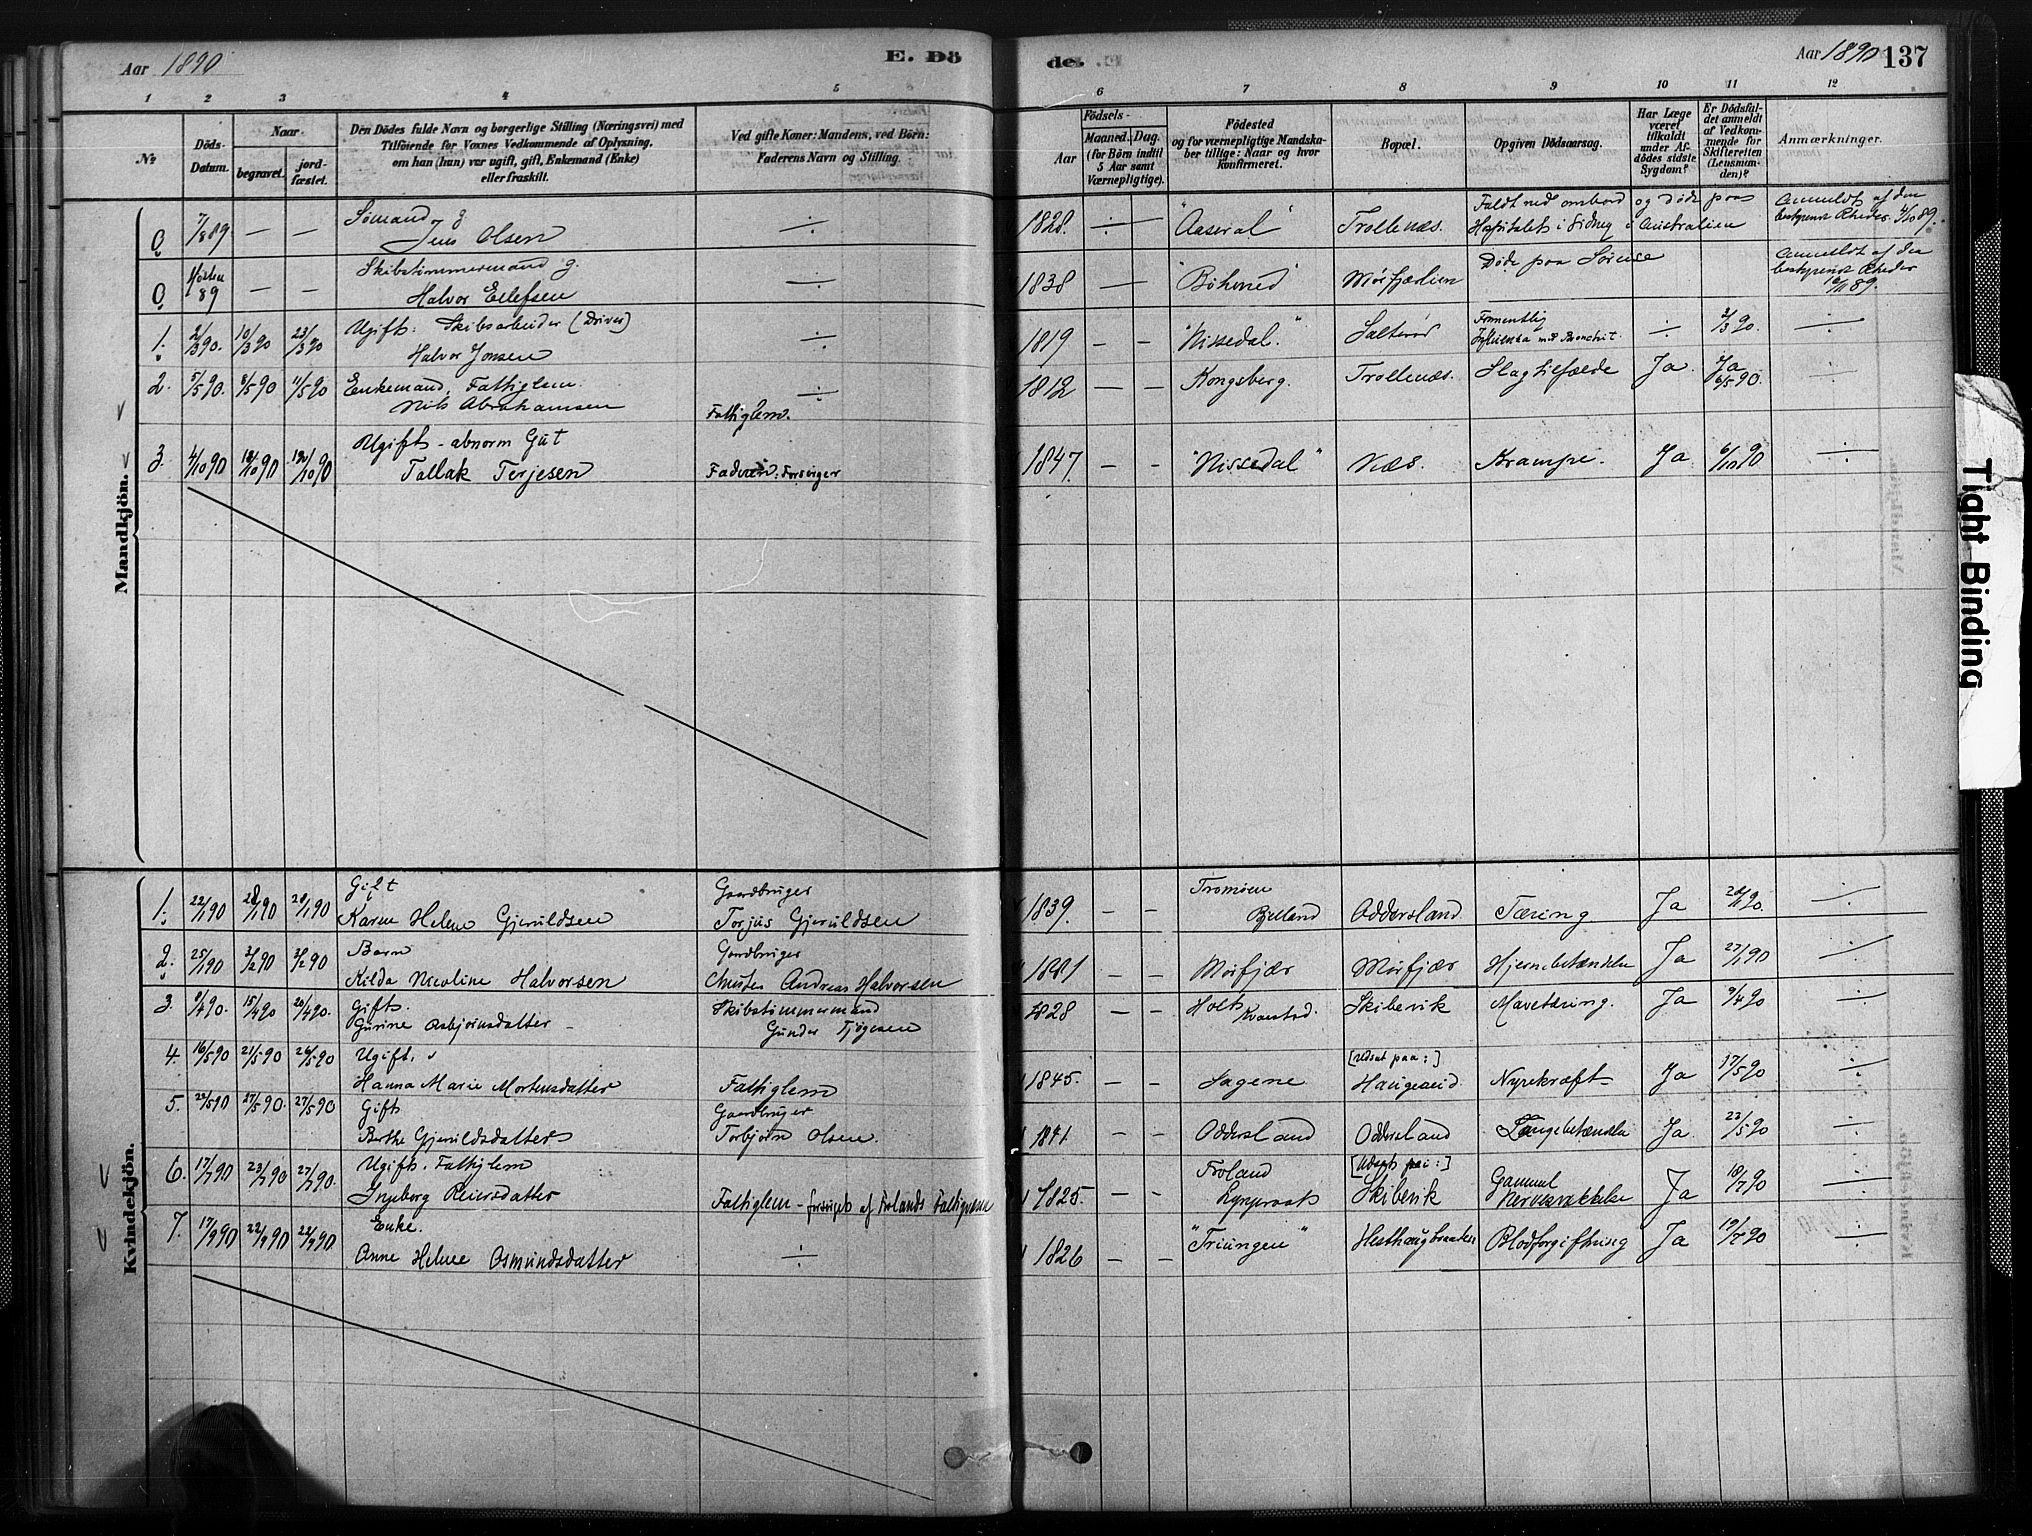 Aar 1890
E. Dö
de.
Aar 1890 137
1 2 3 4 5 6 7 8 9 10 11 12
No
Döds-Datum.
Naar
begravet.
jord-fæstet.
Den Dödes fulde Navn og borgerlige Stilling (Næringsvei) med
Tilföiende for Voxnes Vedkommende af Oplysning,
om han (hun) var ugift, gift, Enkemand (Enke)
eller fraskilt.
Ved gifte Koner: Mandens, ved Börn:
Faderens Navn og Stilling.
Födsels-
Aar
Maaned. Dag.
(for Börn indtil
5 Aar samt
Værnepligtige).
Födested
og for værnepligtige Mandska-
ber tillige: Naar og hvor
konfirmeret.
Bopæl.
Opgiven Dödsaarsag.
Har Læge
været
tilkaldt
under Af-
dödes sidste
Sygdom?
Er Dödsfal-
det anmeldt
af Vedkom-
mende for
Skifteretten
(Lensman-
den)?
Anmærkninger.
Mandkjön.
0 7/8 89 — — Sømand g Jens Olsen ÷ 1828 ÷ — "Aaseral" Trollenæs. Faldt ned ombord og døde paa Hospitalet i Sidney i Australien Anmeldt af den bestyrende Rheder 4/10 89.
0 Høsten 89 — — Skibstimmermand g. Halvor Eilefsen ÷ 1838 — — Mörfjærlien Døde paa Søreise Anmeldt af den bestyrende Rheder 89.
1. 2/3 90. 10/3 90 23/3 90 Ugift: Skibsarbeider (Driver) Halvor Jonsen ÷ 1819 — — "Nissedal." Salterød Bronchit. ÷ 3/3 90. ÷
2. 5/5 90. 8/5 90 11/5 90 Enkemand, Fattiglem. Nils Abrahamsen ÷ Fattiglem. 1812 — — Kongsberg. Trollenæs. Slagtilfælde Ja. Ja 6/5 90. ÷
3. 4/10 90 90 90 Ugift - abnorm Gut Tallak Terjesen Forsörger 1847 — — "Nissedal" Næs. Krampe. Ja 6/10 90 ÷
Kvindekjön.
1. 22/1 90 28/1 90 28/1 90 Gift Karen Helene Gjeruldsen Gaardbruger Torjus Gjeruldsen 1839. — — Tromøen Bjelland Oddersland Tæring Ja 90. ÷
2. 25/1 90 3/2 90 3/2 90 Barn Kilda Nicoline Halvorsen Gaardbruger Christen Andreas Halvorsen 1881 — — Mörfjær Mörfjær Hjernebetændelse Ja 27/1 90 ÷
3. 9/4 90. 15/4 90 20/4 90. Gift. Gurine Asbjørnsdatter Skibstimmermand Gunder Tjøgesen 1828 — — Holt Kvarstad. Skibevik Mavetæring. Ja 9/4 90 ÷
4. 16/5 90 21/5 90 26/5 90 Ugift. Hanna Marie Mortensdatter Fattiglem 1845. — — Sagene [Udsat paa:] Haugeneid Nyrekræft Ja 17/5 90 ÷
5. 22/5 90 27/5 90. 27/5 90 Gift Berthe Gjeruldsdatter Gaardbruger Torbjørn Olsen. 1841 — — Oddersland Oddersland Lungebetændelse Ja 23/5 90 ÷
6. 17/7 90 23/7 90 27/7 90. Ugift. Fattiglem Ingeborg Reiersdatter Fattiglem - forsörget af Frolands Fattigvæsen 1825. — — Froland [Udsat paa:] Skibevik Gammel Nervesvækkelse Ja 18/7 90 ÷
7. 17/9 90 22/9 90 22/9 90. Enke. Anne Helene Osmundsdatter ÷ 1826 — — "Triungen" Hesthaugbraaten Blodforgiftning Ja 90 ÷
Tight Binding